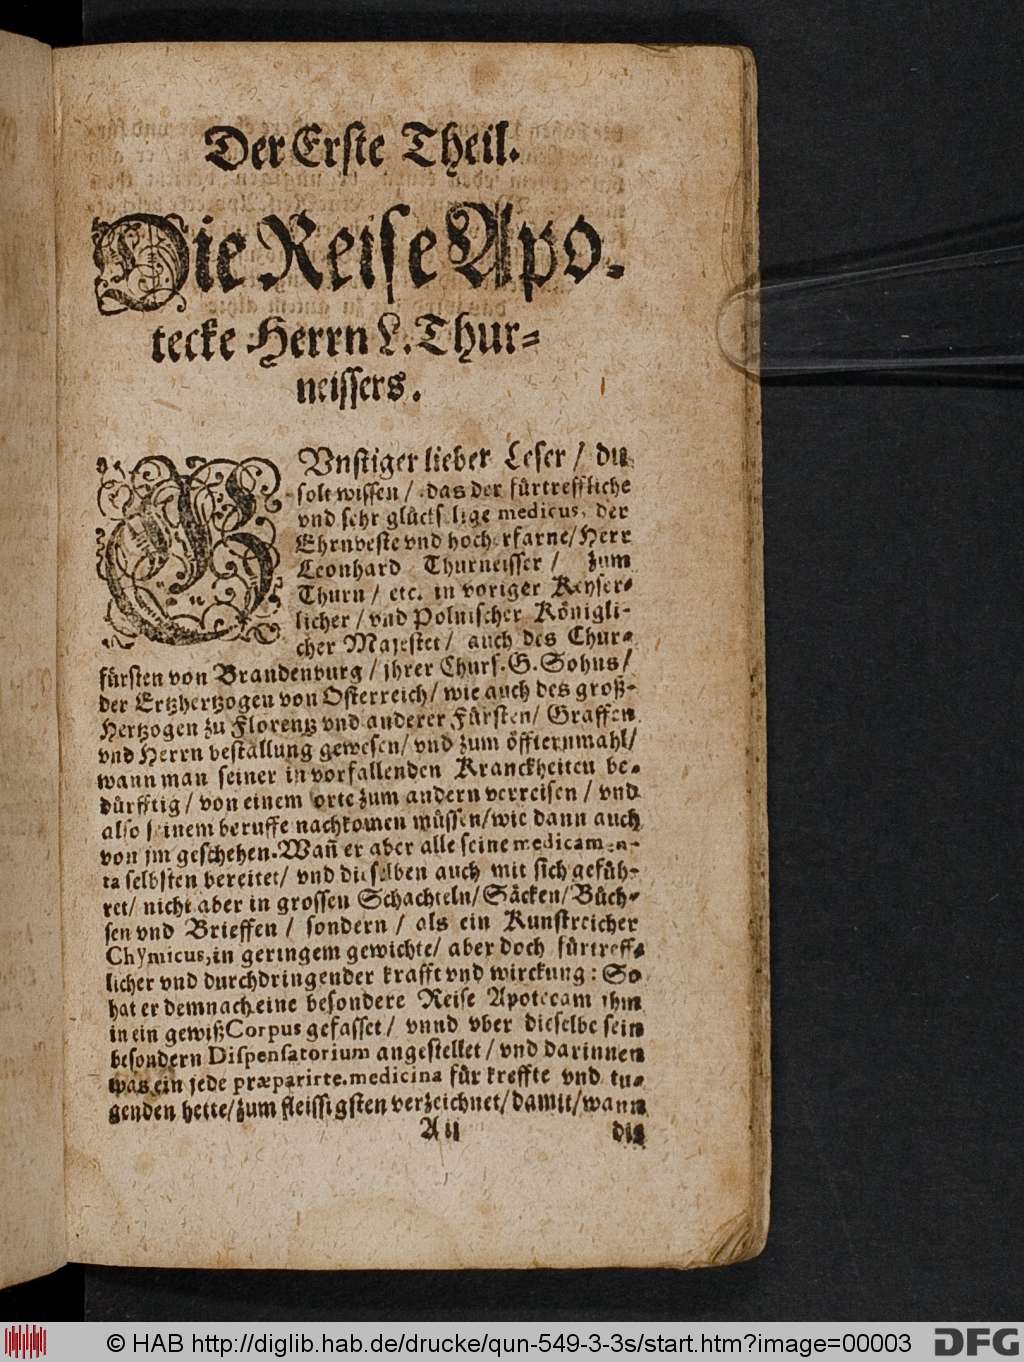 Der Erste Theil.
Die Reise Apo-
tecke Herrn L. Thur-
neissers.
GVnstiger lieber Leser / du
solt wissen / das der fürtreffliche
vnd sehr glückselige medicus, der
Ehrnveste vnd hocherfarne / Herr
Leonhard Thurneisser / zum
Thurn / etc. in voriger Keyser-
licher / vnd Polnischer Königli-
cher Majestet / auch des Chur-
fürsten von Brandenburg / jhrer Churf. G. Sohns /
der Ertzhertzogen von Osterreich / wie auch des groß-
Hertzogen zu Florentz vnd anderer Fürsten / Graffen
vnd Herrn bestallung gewesen / vnd zum öfftern mahl /
wann man seiner in vorfallenden Kranckheiten be-
dürfftig / von einem orte zum andern verreisen / vnd
also seinem beruffe nachkomen müssen / wie dann auch
von jm geschehen. Wañ er aber alle seine medicamen-
ta selbsten bereitet / vnd dieselben auch mit sich gefüh-
ret / nicht aber in grossen Schachteln / Säcken / Büch-
sen vnd Brieffen / sondern / als ein Kunstreicher
Chymicus, in geringem gewichte / aber doch fürtreff-
licher vnd durchdringender krafft vnd wirckung: So
hat er demnach eine besondere Reise Apotecam ihm
in ein gewiß Corpus gefasset / vnnd vber dieselbe sein
besondern Dispensatorium angestellet / vnd darinnen
was ein jede præparirte medicina für kreffte vnd tu-
genden hette / zum fleissigsten verzeichnet / damit / wann
A ij die
© HAB http://diglib.hab.de/drucke/qun-549-3-3s/start.htm?image=00003 DFG